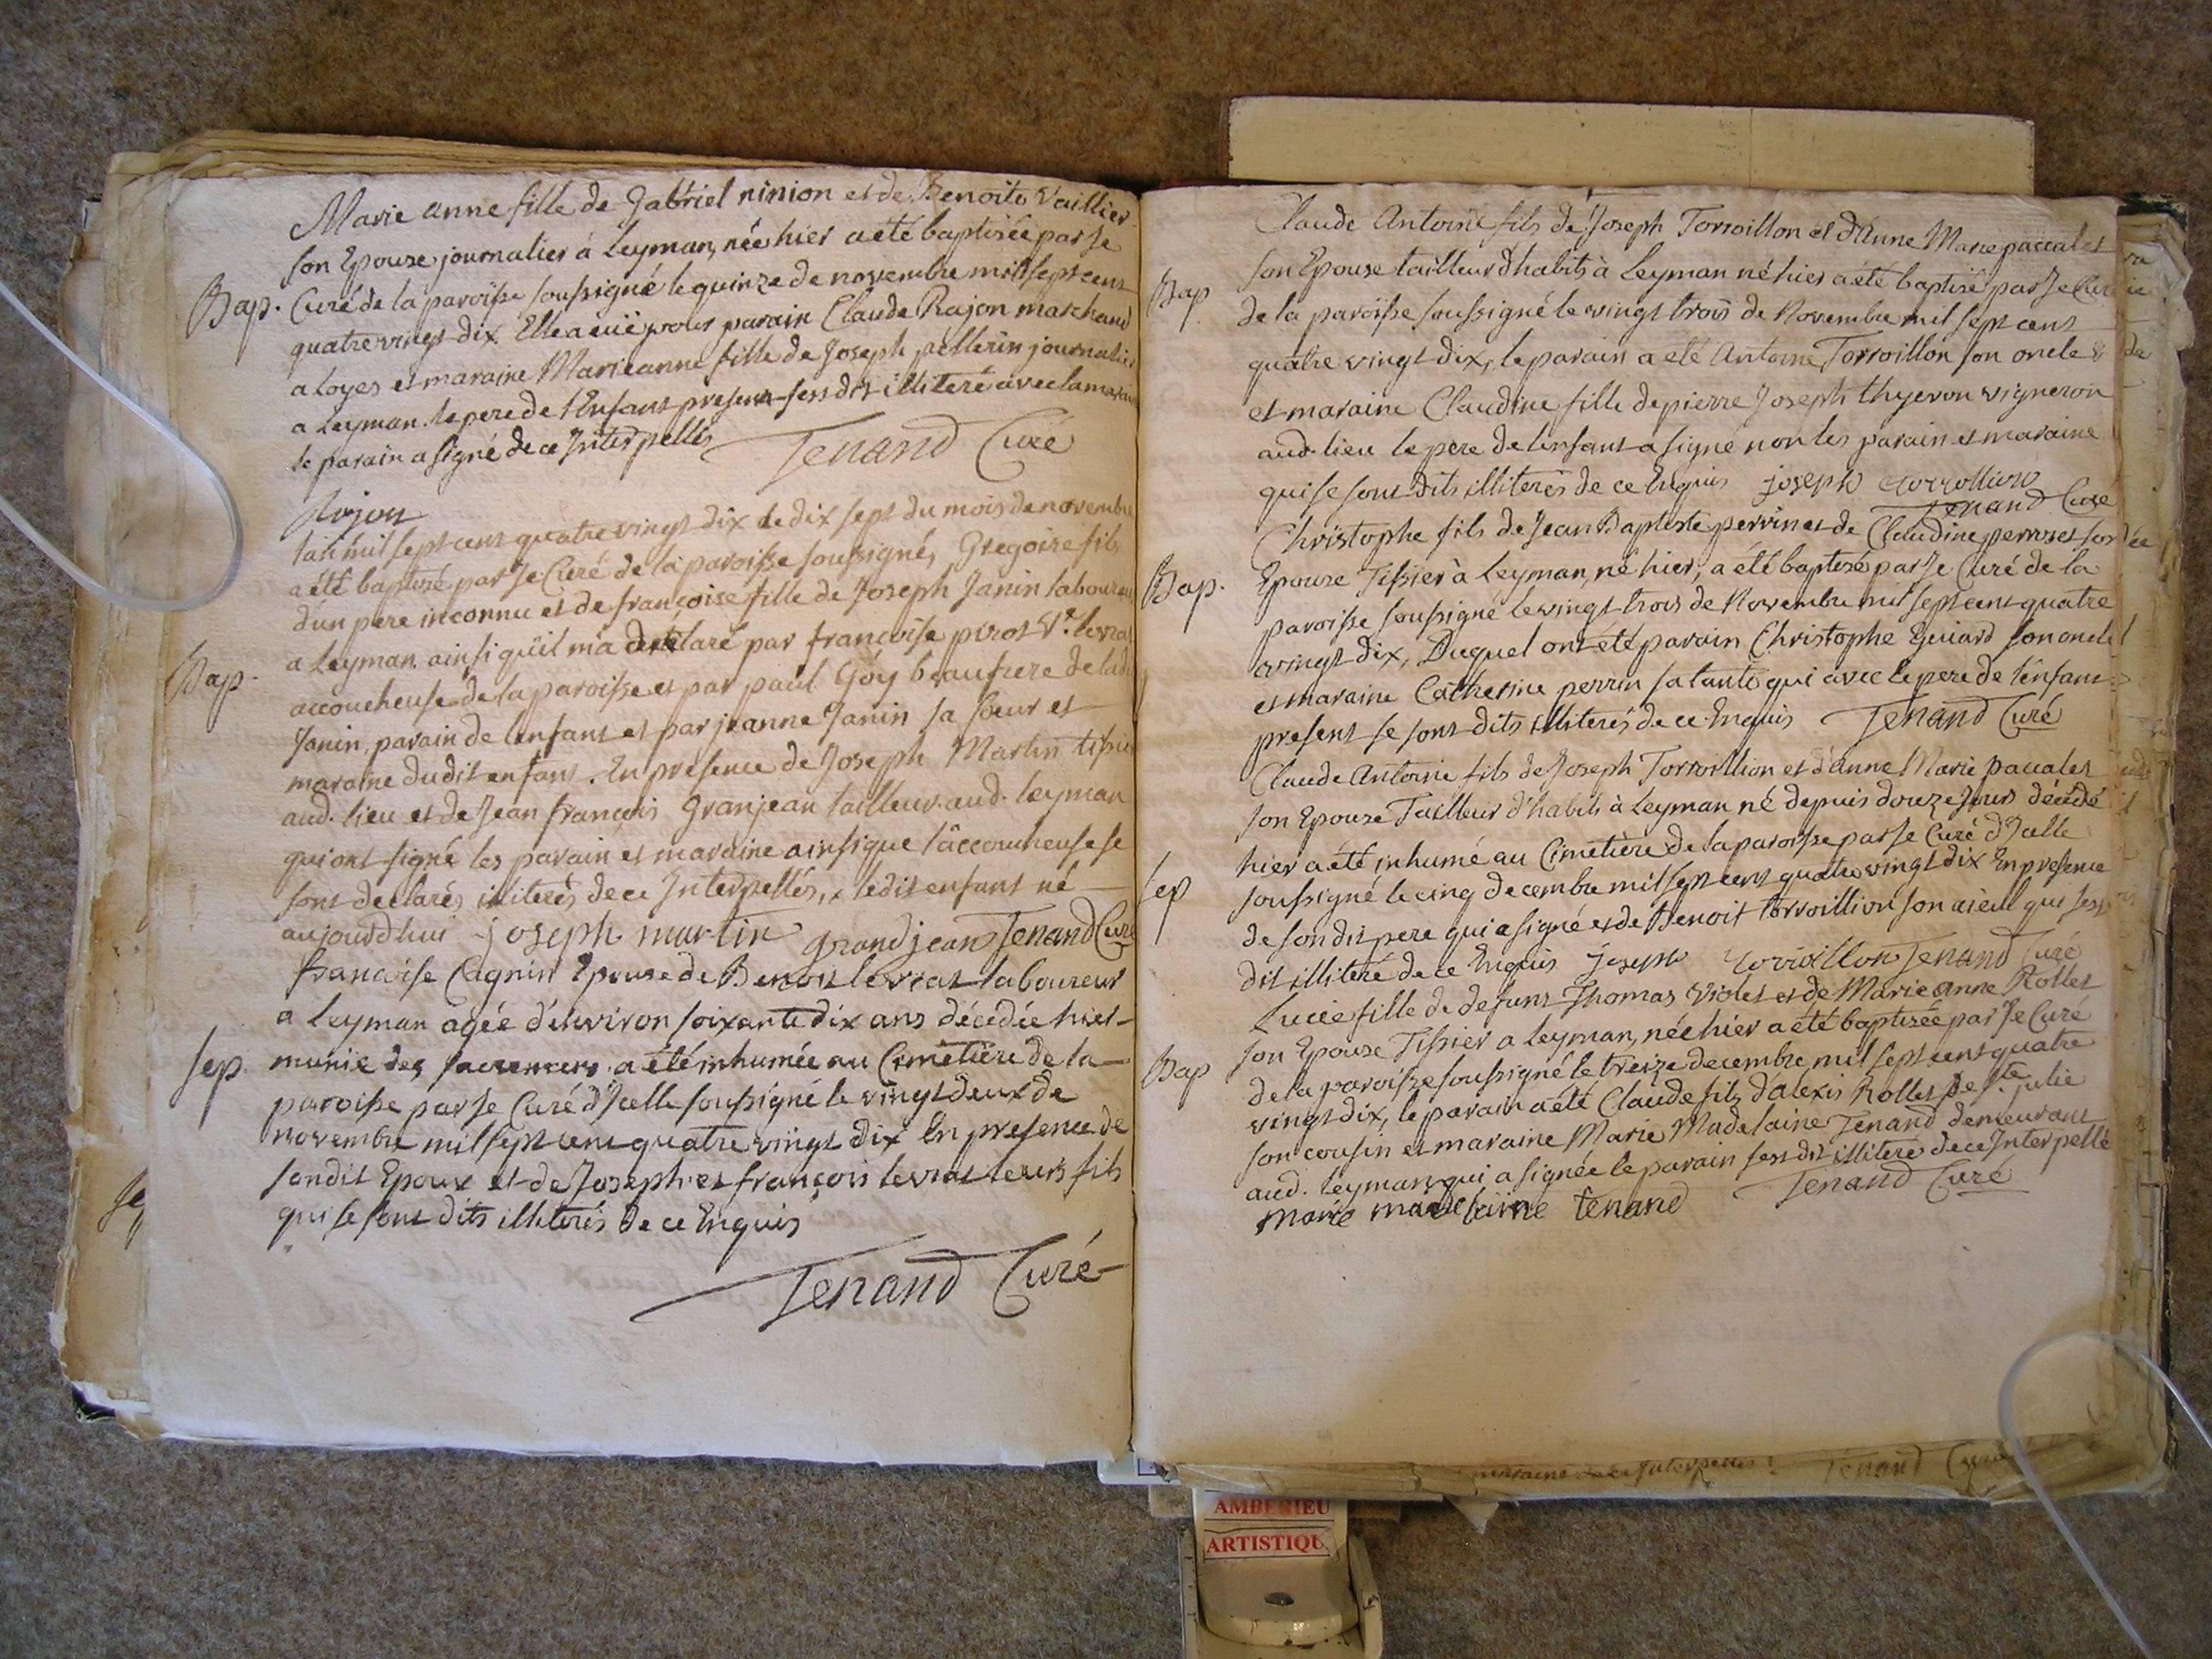 Marie anne fille de Gabriel ninion et de Benoite Vaillier
son Epouse journalier à Leyman, née hier a été baptisée par Je
Bap. Curé de la paroisse soussigné le quinze de novembre mil sept cent
quatre vingt dix. Elle a euë pour parain Claude Rajon marchand
a Loyes et maraine Marieanne fille de Joseph pellerin journalier
a Leyman. le pere de l'Enfant present sest dit illiteré avec la maraine
le parain a signé de ce Interpellés Tenand Curé
Rojon
lan mil sept cent quatre vingt dix le dix sept du mois de novembre
a été baptisé par Je Curé de la paroisse soussigné, Gregoire fils
d'un pere inconnu et de françoise fille de Joseph Janin laboureur
Bap. a Leyman. ainsi qu'il m'a declaré par francoise pirot Ve. levrat
accoucheuse de la paroisse et par paul Goÿ beaufrere de lad
Janin, parain de lenfant et par jeanne Janin sa soeur et
maraine dudit enfant. En presence de Joseph Martin tissier
aud. lieu et de Jean françois Granjean tailleur aud. leyman
qui ont signé les parain et maraine ainsi que l'accoucheuse se
sont declarés illiterés de ce Interpellés, x ledit enfant né
aujourdhui joseph martin grandjean Tenand Curé
francoise Cagnin Epouse de Benoit levrat laboureur
a Leyman agée d'environ soixante dix ans décédée hier
Sep. munie des sacremens a été inhumée au Cimetière de la
paroisse par Je Curé d'Icelle soussigné le vingt deux de
novembre mil sept cent quatre vingt dix En presence de
sondit Epoux et de Joseph et françois levrat leurs fils
qui se sont dits illiterés de ce Enquis
Tenand Curé
Claude Antoine fils de Joseph Torroillon et d'Anne Marie paccalet
Bap son Epouse tailleur d'habits à Leyman né hier a été baptisé par Je Curé
de la paroisse soussigné le vingt trois de Novembre mil sept cent
quatre vingt dix, le parain a été Antoine Torroillon son oncle
et maraine Claudine fille de pierre Joseph thyevon vigneron
aud. lieu le pere de lenfant a signé non les parain et maraine
qui se sont dits illiterés de ce Enquis joseph torrollion
Tenand Curé
Christophe fils de Jean Baptiste perrin et de Claudine perroset son
Bap. Epouse Tissier à Leyman, né hier, a été baptisé par Je Curé de la
paroisse soussigné le vingt trois de Novembre mil sept cent quatre
vingt dix, Duquel ont été parain Christophe Eguiard son oncle
et maraine Catherine perrin sa tante qui avec le pere de l'enfant
present se sont dits illiterés de ce Enquis Tenand Curé
Claude Antoine fils de Joseph Torroillion et d'anne Marie paccalet
son Epouse Tailleur d'habits à Leyman né depuis douze Jours décédé
hier a été inhumé au Cimetière de la paroisse par Je Curé d'Icelle
Sep soussigné le cinq decembre mil sept cent quatre vingt dix En presence
de son dit pere qui a signé et de Benoit torroillion son aieul qui sest
dit illiteré de ce Enquis joseph torroillon Tenand Curé
Lucie fille de defunt Thomas Violet et de Marie anne Rollet
son Epouse Tissier a Leyman, née hier a été baptisée par Je Curé
Bap de la paroisse soussigné le treize decembre mil sept cent quatre
vingt dix, le parain a été Claude fils d'alexis Rollet de Ste julie
son cousin et maraine Marie Madelaine Tenand demeurant
aud. leyman qui a signée le parain sest dit illiteré de ce Interpellé
marie madelaine tenand Tenand Curé
maraine de ce Interpellés. Tenand Curé
AMBERIEU
ARTISTIQU